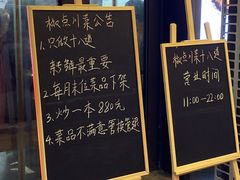 椒点川菜公告
1.只做十八道
新鲜最重要
2.每月末位菜品下架
3.炒一本880元
4.菜品不满意管换管退
椒点川菜十八道
营业时间
11:00-22:00